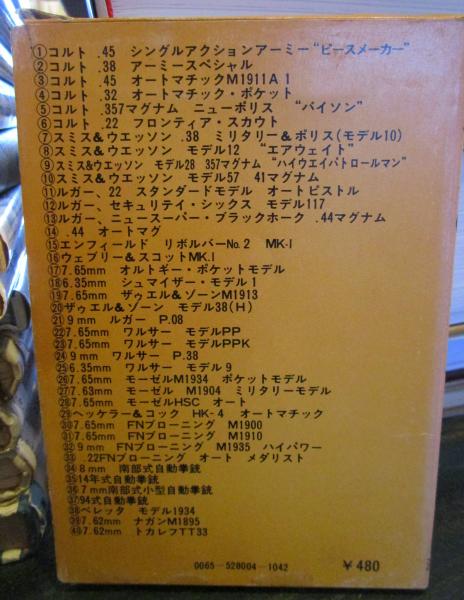 ①コルト .45 シングルアクションアーミー“ピースメーカー”
②コルト .38 アーミースペシャル
③コルト .45 オートマチックM1911A1
④コルト .32 オートマチック・ポケット
⑤コルト .357マグナム ニューポリス “パイソン”
⑥コルト .22 フロンティア・スカウト
⑦スミス&ウエッソン .38 ミリタリー&ポリス(モデル10)
⑧スミス&ウエッソン モデル12 “エアウェイト”
⑨スミス&ウエッソン モデル28 357マグナム “ハイウエイパトロールマン”
⑩スミス&ウエッソン モデル57 41マグナム
⑪ルガー、22 スタンダードモデル オートピストル
⑫ルガー、セキュリティ・シックス モデル117
⑬ルガー、ニュースーパー・ブラックホーク .44マグナム
⑭.44 オートマグ
⑮エンフィールド リボルバーNo.2 MK-I
⑯ウェブリー&スコットMK.I
⑰7.65mm オルトギー・ポケットモデル
⑱6.35mm シュマイザー・モデル1
⑲7.65mm ザウエル&ゾーンM1913
⑳ザウエル&ゾーン モデル38(H)
㉑9mm ルガー P.08
㉒7.65mm ワルサー モデルPP
㉓7.65mm ワルサー モデルPPK
㉔9mm ワルサー P.38
㉕6.35mm ワルサー モデル9
㉖7.65mm モーゼルM1934 ポケットモデル
㉗7.63mm モーゼル M1904 ミリタリーモデル
㉘7.65mm モーゼルHSC オート
㉙ヘッケラー&コック HK-4 オートマチック
㉚7.65mm FNブローニング M1900
㉛7.65mm FNブローニング M1910
㉜9mm FNブローニング M1935 ハイパワー
㉝.22FNブローニング オート メダリスト
㉞8mm 南部式自動拳銃
㉟14年式自動拳銃
㊱7mm南部式小型自動拳銃
㊲94式自動拳銃
㊳ベレッタ モデル1934
㊴7.62mm ナガンM1895
㊵7.62mm トカレフTT33
0065-528004-1042 ￥480